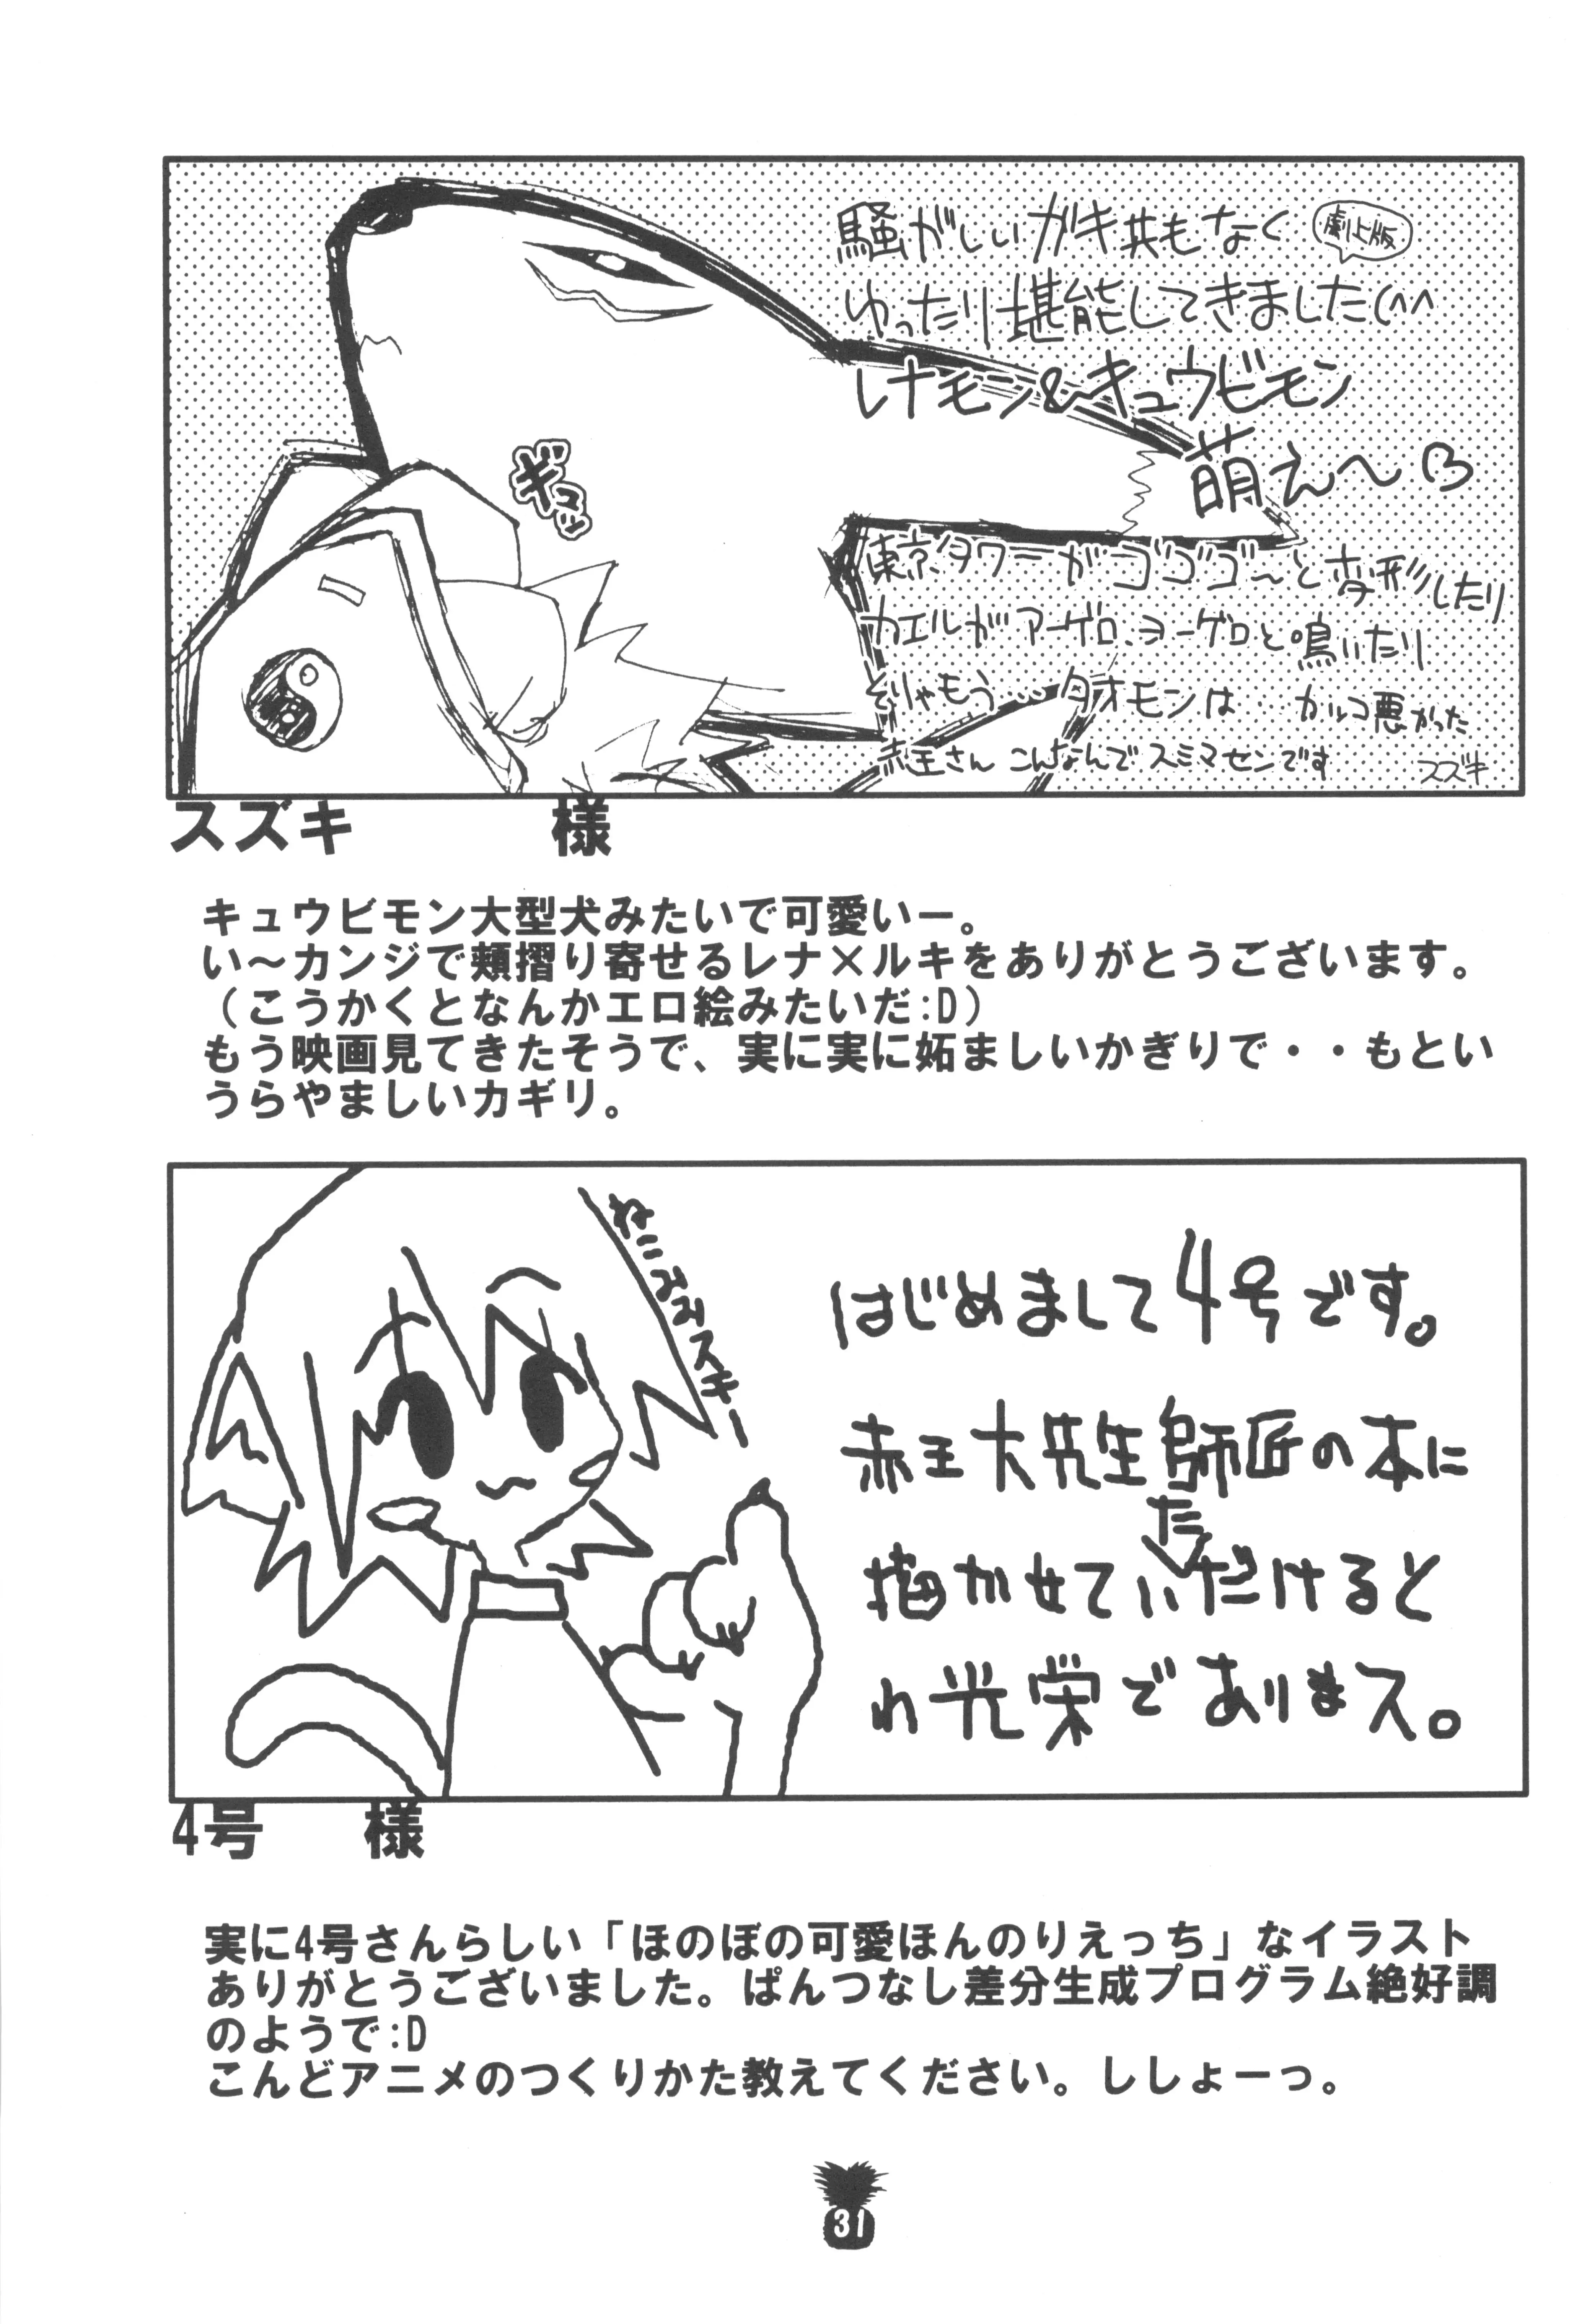 騒がしいガキ共もなく
劇上版
ゆったり堪能してきました(^^
レナモン&キュウビモン
萌え〜♡
ギュッ
東京タワーがゴゴゴ〜と変形したり
カエルがアーゲロ、ヨーゲロと鳴いたり
そりゃもう…タオモンは カッコ悪かった
赤王さん こんなんでスミマセンです
スズキ
スズキ 様
キュウビモン大型犬みたいで可愛いー。
い〜カンジで頬摺り寄せるレナ×ルキをありがとうございます。
(こうかくとなんかエロ絵みたいだ:D)
もう映画見てきたそうで、実に実に妬ましいかぎりで・・もとい
うらやましいカギリ。
ねこみみスキー
はじめまして4号です。
赤王大先生師匠の本に
描かせていただけると
わ光栄でありまス。
4号 様
実に4号さんらしい「ほのぼの可愛ほんのりえっち」なイラスト
ありがとうございました。ぱんつなし差分生成プログラム絶好調
のようで:D
こんどアニメのつくりかた教えてください。ししょーっ。
31